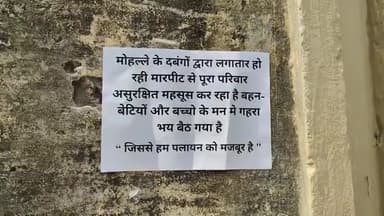 मोहल्ले के दबंगों द्वारा लगातार हो
रही मारपीट से पूरा परिवार
असुरक्षित महसूस कर रहा है बहन-
बेटियों और बच्चो के मन मे गहरा
भय बैठ गया है
“ जिससे हम पलायन को मजबूर है ”